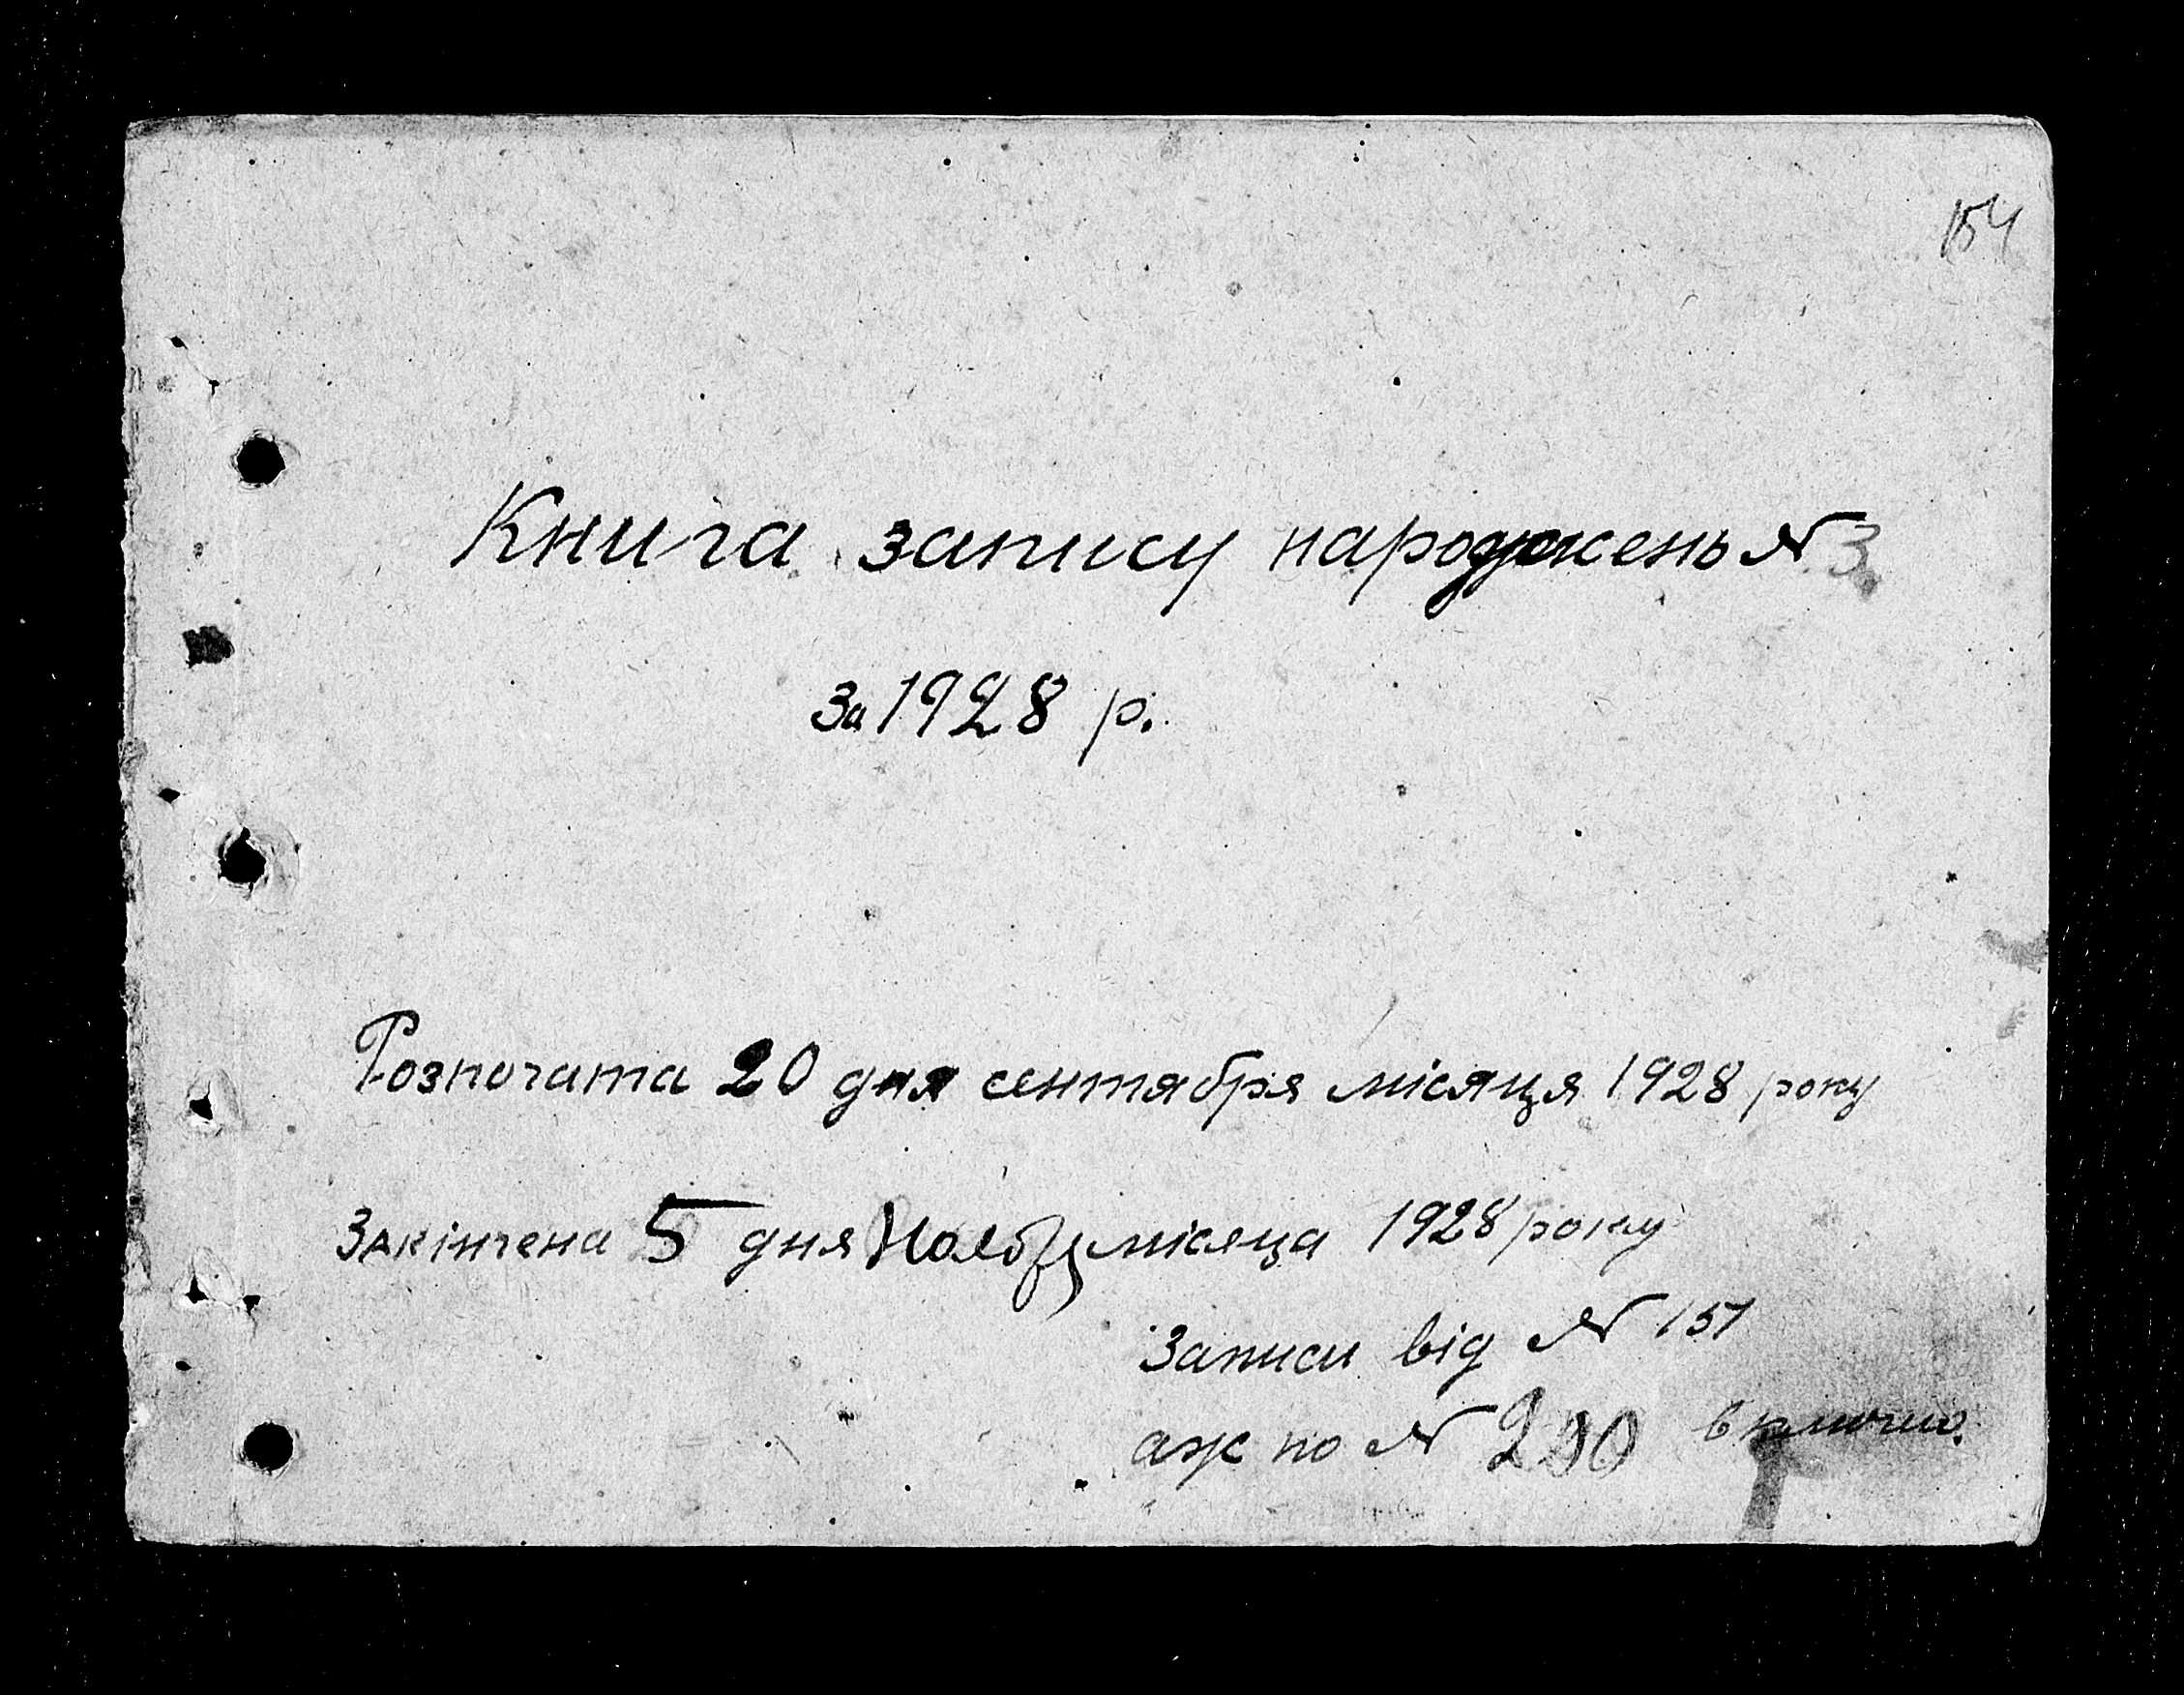 154
Книга запису народжень № 3
За 1928 р.
Розпочата 20 дня сентября місяця 1928 року
Закінчена 5 дня місяца 1928 року
Записи від № 151
аж по № 200 включно.